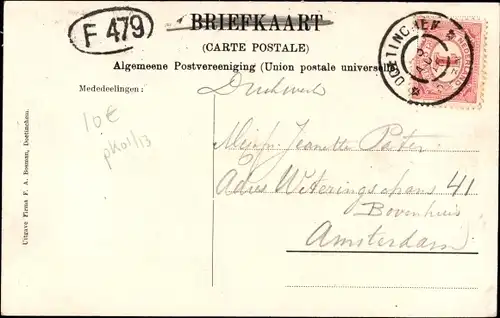 F 479
BRIEFKAART
(CARTE POSTALE)
Algemeene Postvereeniging (Union postale universelle)
Mededeelingen:
Drukwerk
10€
pk01/13
Mejufr. Jeanette Pater
Adres Weteringschans 41
Bovenhuis
Amsterdam
DOETINCHEM
Uitgave Firma F. A. Bosman, Doetinchem.